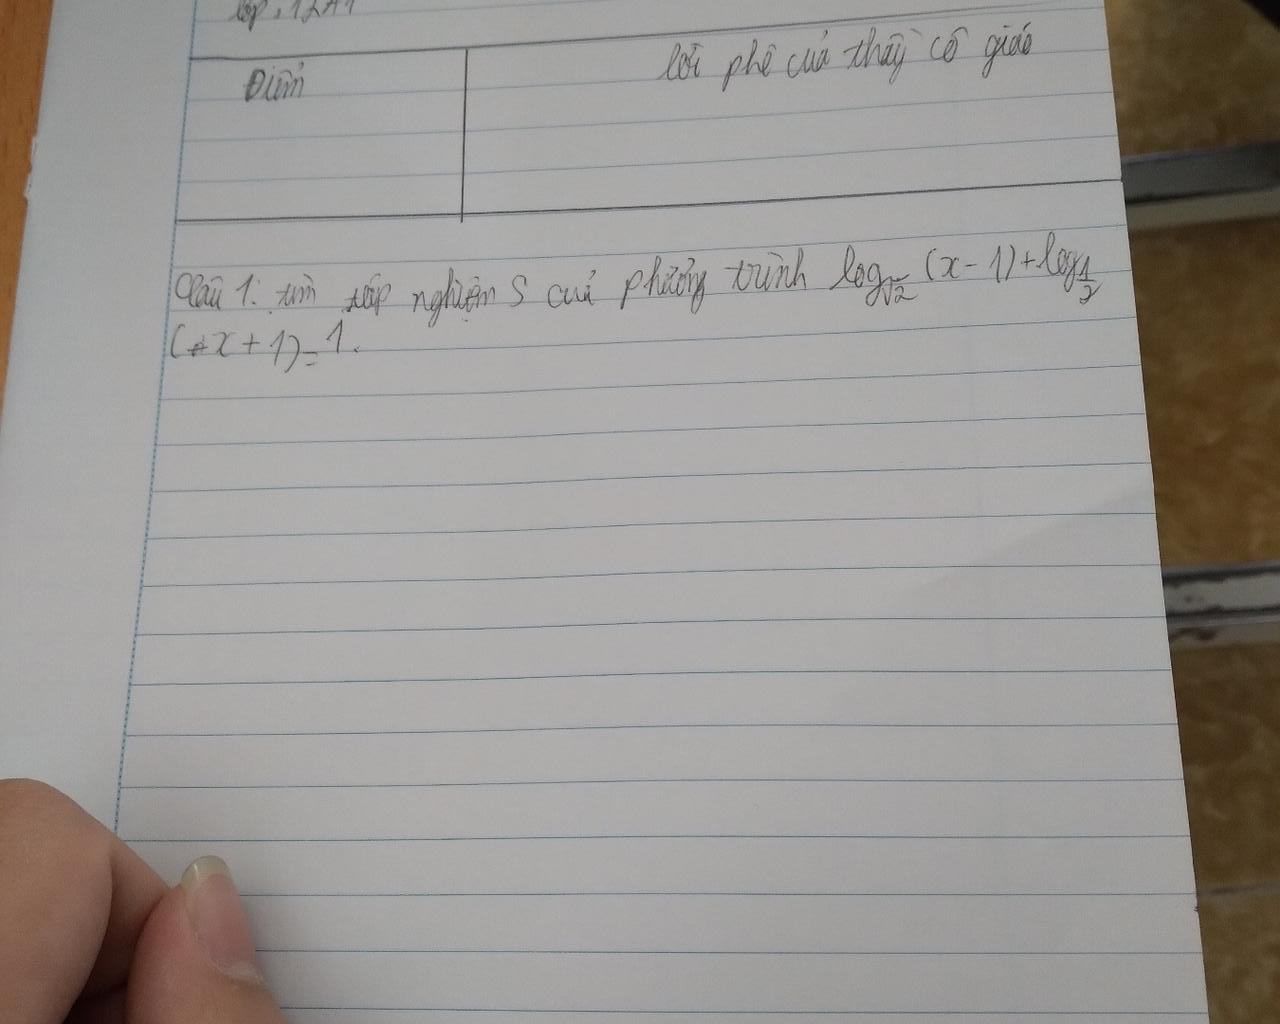 lớp: 12A1
Điểm
lời phê của thầy cô giáo
Câu 1: tìm tập nghiệm S của phương trình log√2 (x - 1) + log1/2
(x + 1) = 1.